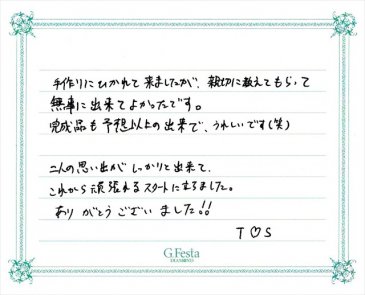 手作りにひかれて来ましたが、親切に教えてもらって
無事に出来てよかったです。
完成品も予想以上の出来で、うれしいです(笑)
二人の思い出がしっかりと出来て、
これから頑張れるスタートになりました。
ありがとうございました!!
T♡S
G.Festa
DIAMOND